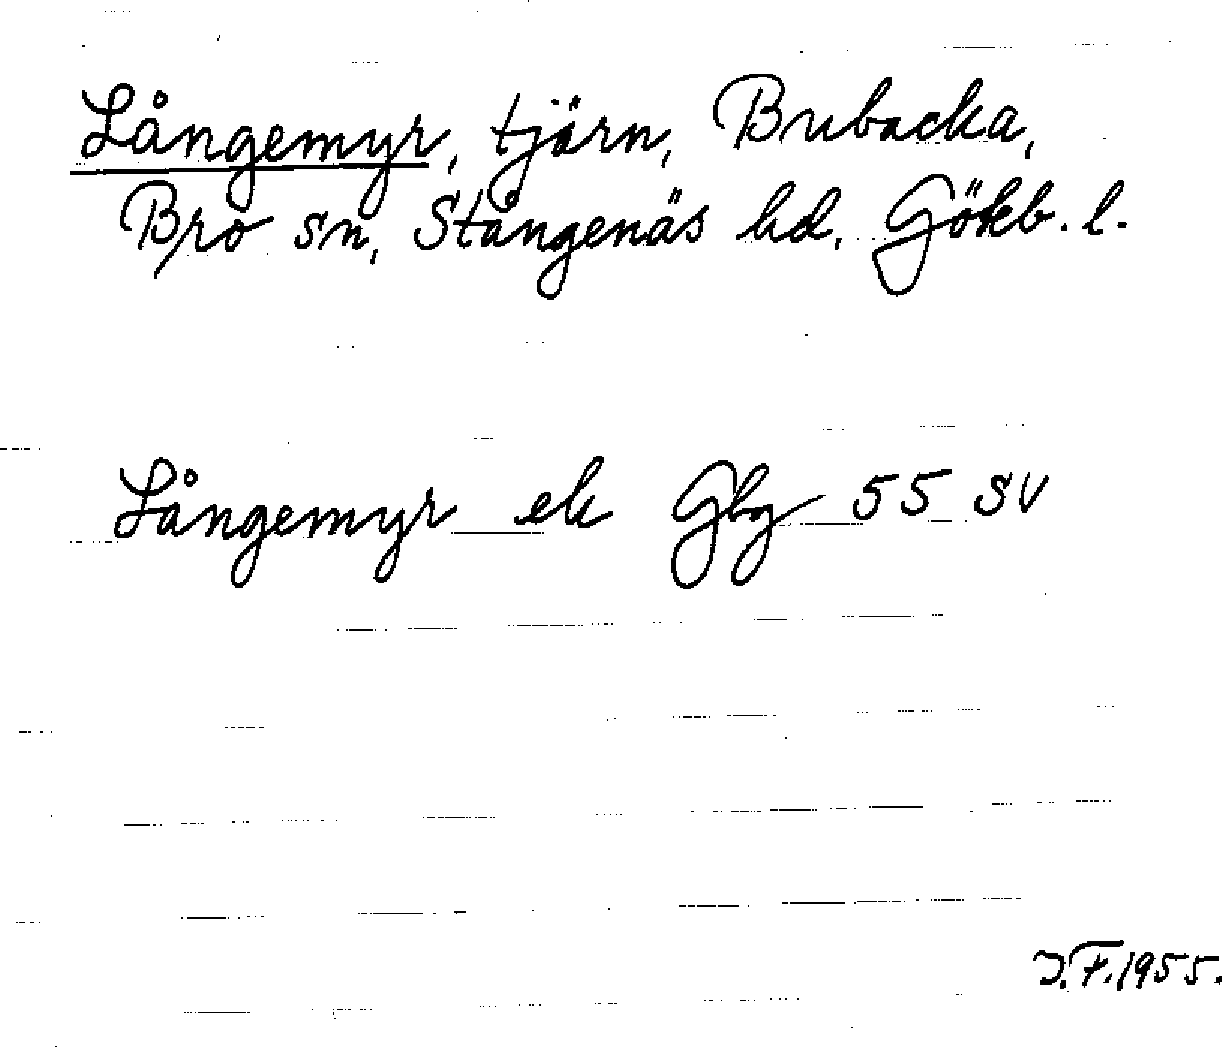 Långemyr, tjärn, Bubacka,
Bro sn, Stångenäs hd, Gökb. l.
Långemyr ek Gbg 55 SV
J.F. 1955.